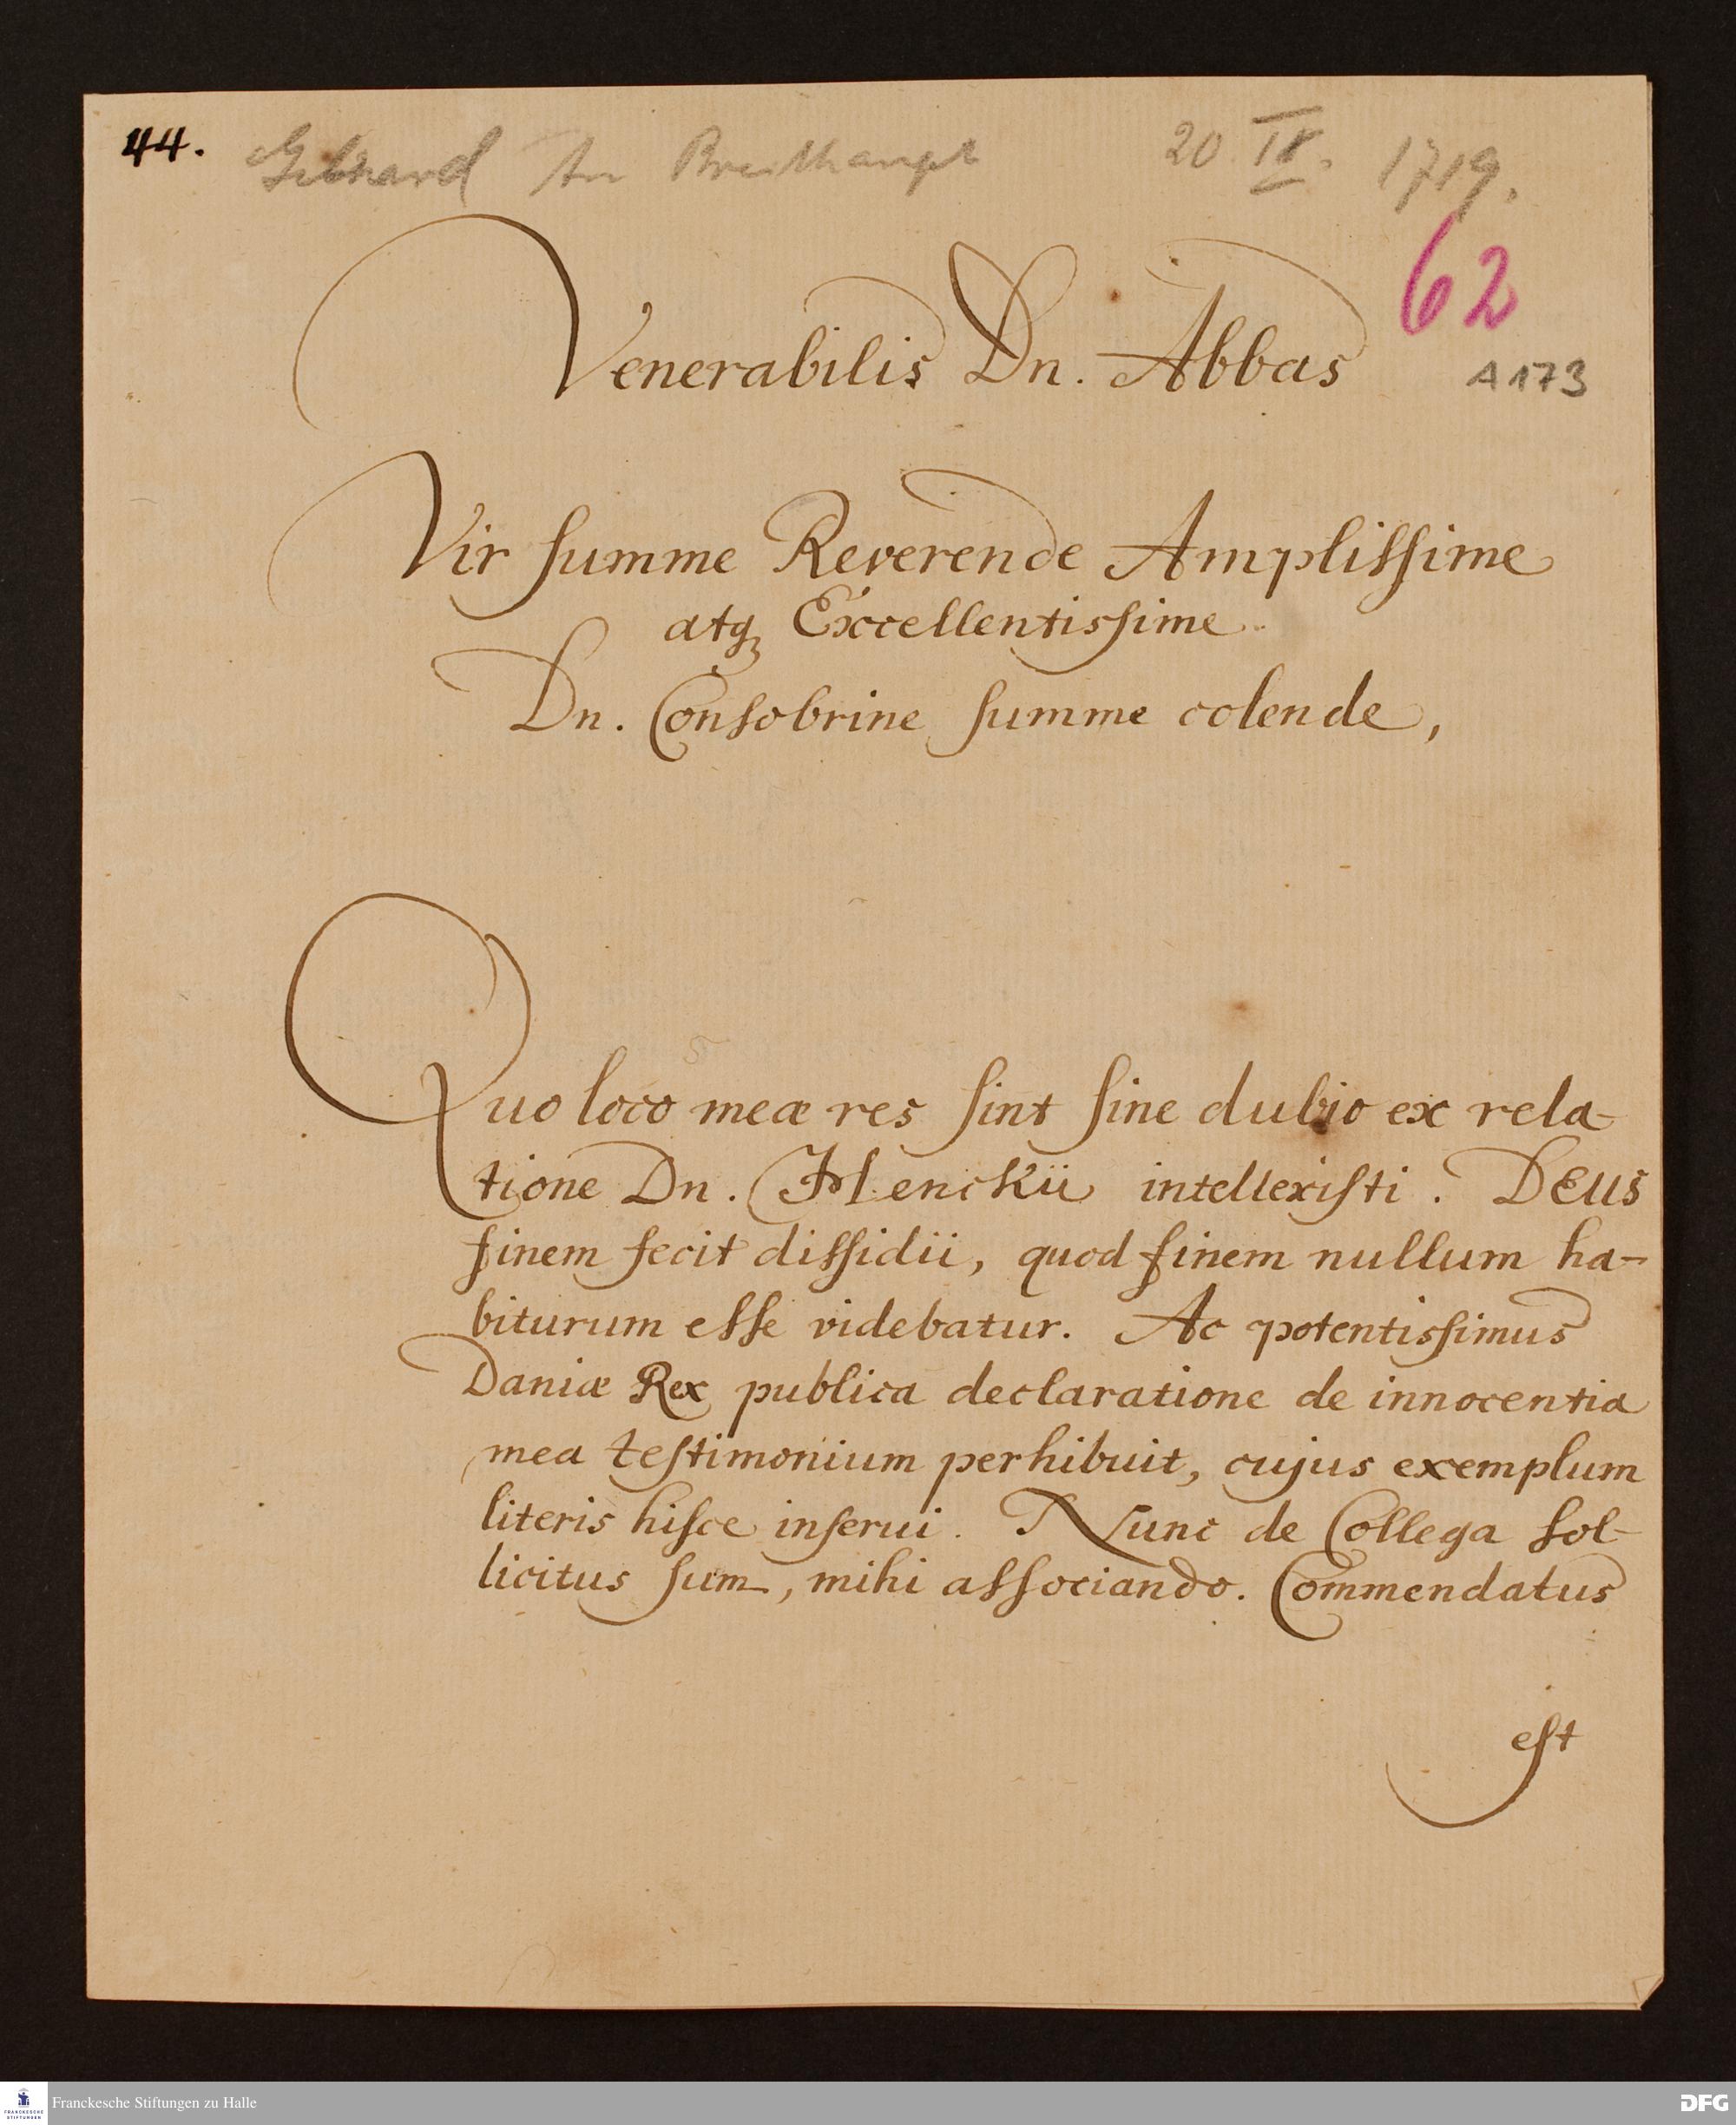 44. Gebhard An Breithaupt 20 IX. 1719.
62
Venerabilis Dn. Abbas
A 173
Vir ſumme Reverende Ampliſſime
atq; Excellentisſime
Dn. Conſobrine ſumme colende,
Quo loco meæ res ſint ſine dubio ex rela-
tione Dn. Henckii intellexiſti. DEUS
finem fecit diſſidii, quod finem nullum ha-
biturum eſſe videbatur. Ac potentisſimus
Daniæ Rex publica declaratione de innocentia
mea teſtimonium perhibuit, cujus exemplum
literis hiſce inſerui. Nunc de Collega ſol-
licitus ſum, mihi aſſociando. Commendatus
eſt
FRANCKESCHE
STIFTUNGEN
Franckesche Stiftungen zu Halle
DFG